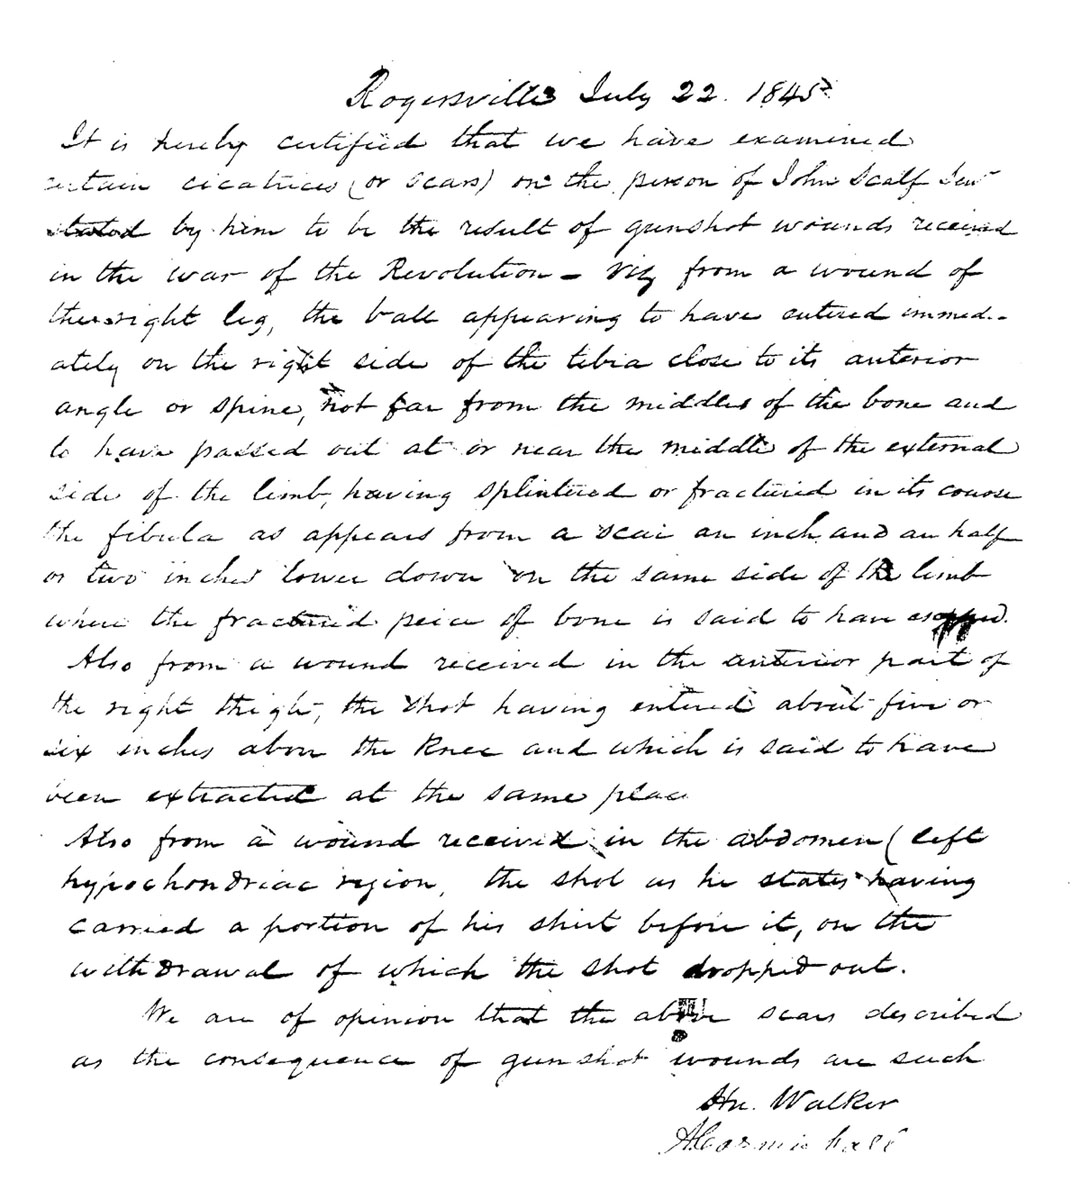 Rogersville July 22. 1845
It is hereby certified that we have examined
certain cicatrices (or scars) on the person of John Scalf Senr
stated by him to be the result of gunshot wounds received
in the war of the Revolution - viz from a wound of
the right leg, the ball appearing to have entered immedi-
ately on the right side of the tibia close to its anterior
angle or spine, not far from the middle of the bone and
to have passed out at or near the middle of the external
side of the limb, having splintered or fractured in its course
the fibula as appears from a scar an inch and an half
or two inches lower down on the same side of the limb
where the fractured peice of bone is said to have
Also from a wound received in the anterior part of
the right thigh, the shot having entered about five or
six inches above the knee and which is said to have
been extracted at the same place
Also from a wound received in the abdomen (left
hypochondriac region, the shot as he states having
carried a portion of his shirt before it, on the
withdrawal of which the shot dropped out.
We are of opinion that the above scars described
as the consequence of gunshot wounds are such
Walker
A Carmichael